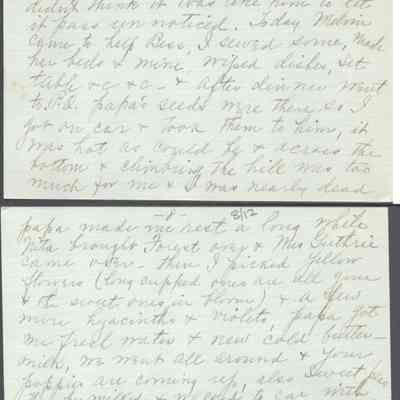 didn't think it was like him to let
it pass un noticed. Today Melvin
came to help Bess, I sewed some, made
her beds & mine, wiped dishes, set
table &c &c - & after dinner went
to P.O. papa's seeds were there so I
got on car & took them to him, it
was hot as could be & across the
bottom & climbing the hill was too
much for me & I was nearly dead
-8- 8/12
papa made me rest a long while
Nita brought Forest over & Mrs Guthrie
came over - then I picked yellow
flowers (long cupped ones are all gone
& the sweet ones in bloom) & a few
more hyacinths & violets, papa got
me fresh water & new, cold butter-
milk, we went all around & your
poppies are coming up, also Sweet peas
milked & to car with